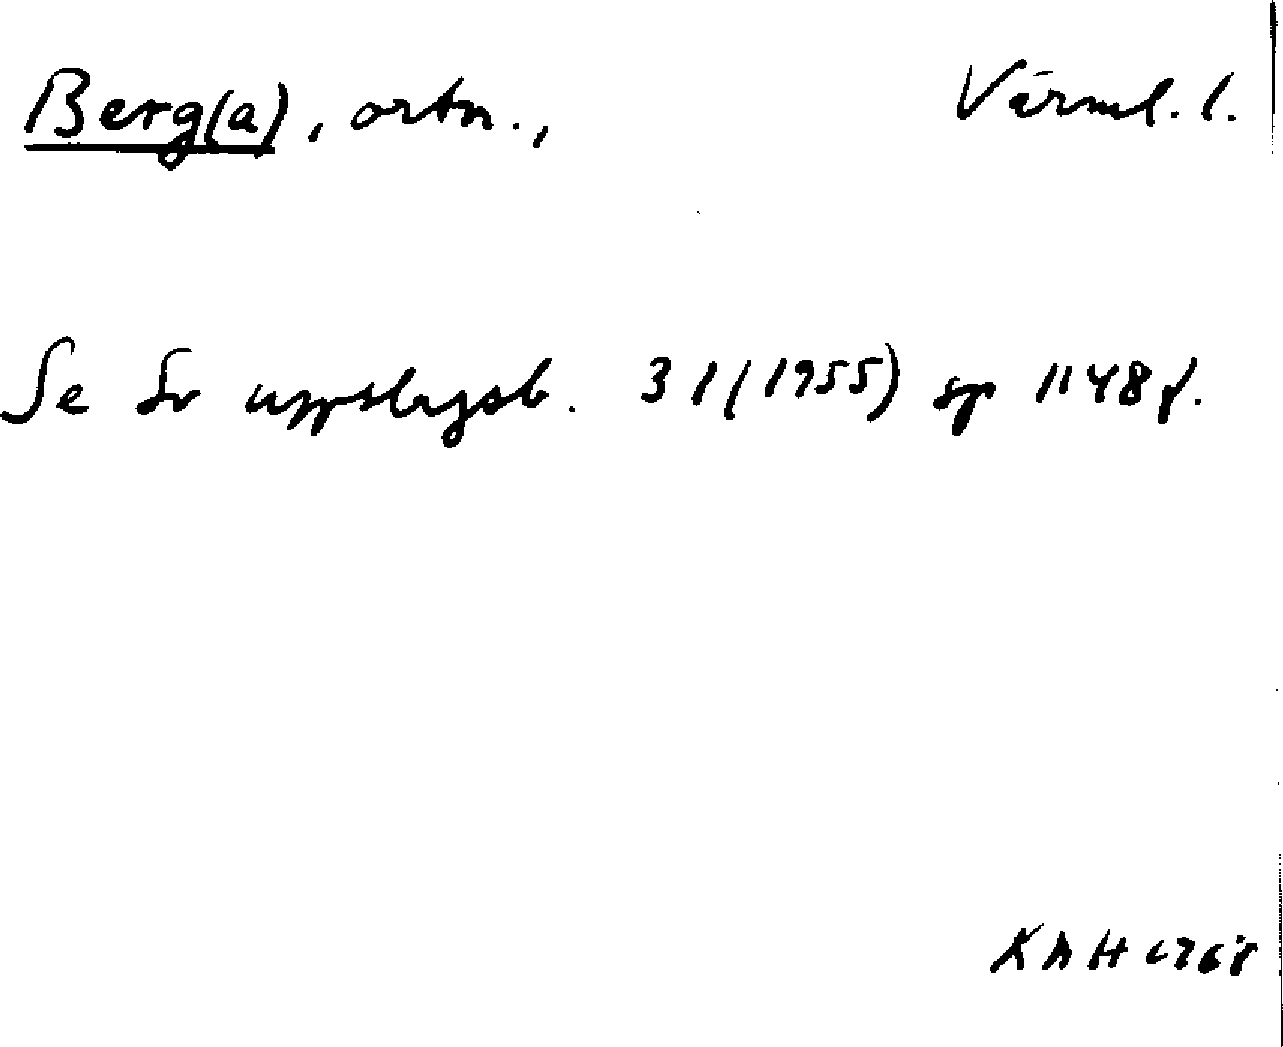 Berg(a), ortn., Värml. l.
Se Sv uppslagsb. 31 (1955) sp 1148 f.
KAH 1968